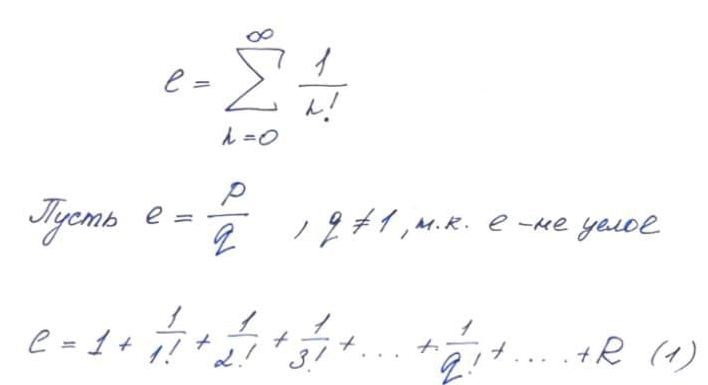 e = ∑_{n=0}^{∞} 1/n!
Пусть e = p/q , q ≠ 1, т.к. e – не целое
e = 1 + 1/1! + 1/2! + 1/3! + ... + 1/q! + .... + R (1)